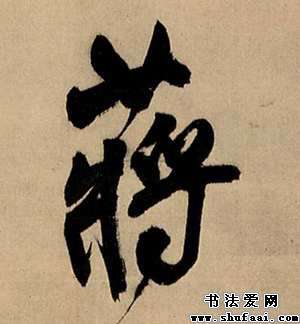 蔣
书法爱网
www.shufaai.com